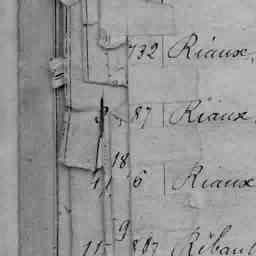 732 Riaux
87 Riaux
18
11 6 Riaux
9
115 807 Ribaut